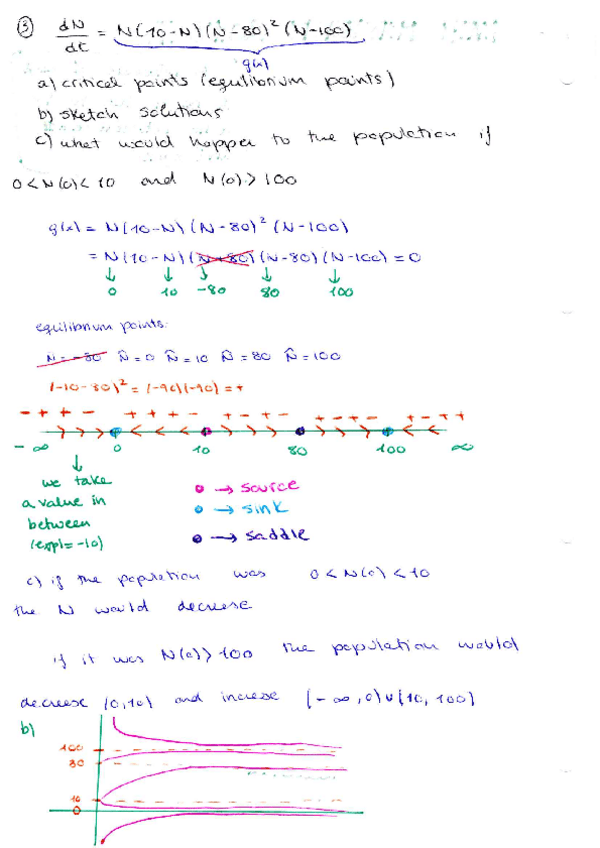 ③ dN/dt = N(10-N)(N-80)² (N-100)
g(x)
a) critical points (equlibrium points)
b) sketch solutions
c) what would happen to the population if
0<N(0)<10 and N(0)>100
g(x) = N(10-N)(N-80)² (N-100)
= N(10-N)(N+80)(N-80)(N-100) = 0
0 10 -80 80 100
equilibrium points:
N = -80 N̂=0 N̂=10 N̂=80 N̂=100
(-10-80)² = (-90)(-90) = +
- + + - + + + - + - + - + + + - + - + +
-∞ 0 10 80 100 ∞
we take
a value in
between
(expl=-10)
→ source
→ sink
→ saddle
c) if the population was 0<N(0)<10
the N would decrese
if it was N(0)>100 the population would
decrese (0,10) and increse (-∞,0)∪(10,100)
b)
100
80
10
0